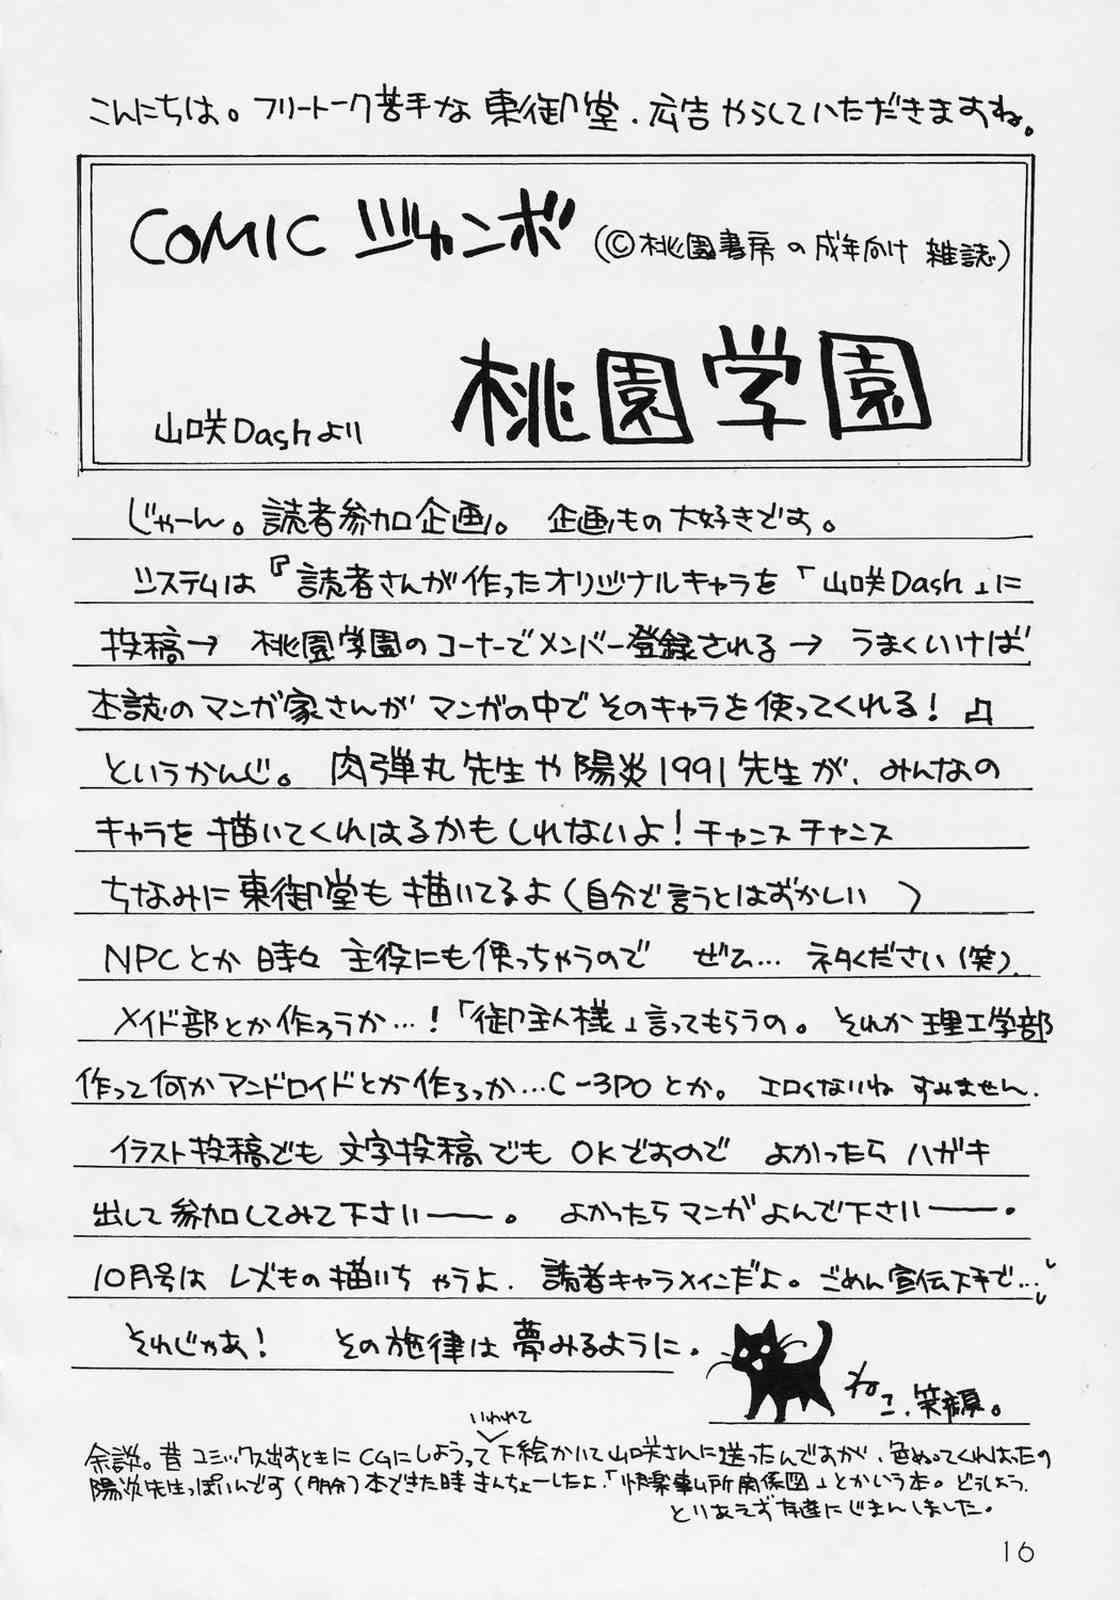 こんにちは。フリートーク苦手な 東御堂.広告やらしていただきますね。
COMIC ジャンボ (©桃園書房の成年向け 雑誌)
桃園学園
山咲Dashより
じゃーん。読者参加企画。 企画もの大好きです。
システムは『読者さんが作ったオリジナルキャラを「山咲Dash」に
投稿→ 桃園学園のコーナーでメンバー登録される→ うまくいけば
本誌のマンガ家さんが マンガの中でそのキャラを使ってくれる!』
というかんじ。 肉弾丸先生や陽炎1991先生が、みんなの
キャラを描いてくれはるかもしれないよ!チャンスチャンス
ちなみに東御堂も描いてるよ(自分で言うとはずかしい )
NPCとか時々 主役にも使っちゃうので ぜひ… ネタください(笑).
メイド部とか作ろうか…!「御主人様」言ってもらうの。 それか理工学部
作って何かアンドロイドとか作ろっか…C-3POとか。 エロくないね すみません.
イラスト投稿でも 文字投稿でも OKですので よかったら ハガキ
出して参加してみて下さいーー。 よかったらマンガよんで下さいーー.
10月号は レズもの描いちゃうよ. 読者キャラメインだよ。ごめん宣伝下手で…
それじゃあ! その旋律は夢みるように.
ねこ.笑顔。
いわれて
余談。昔 コミックス出すときに CGにしようって 下絵かいて 山咲さんに送ったんですが、色ぬってくれはったの
陽炎先生っぽいんです(多分)本できた時 きんちょーしたよ.「快楽事ム所関係図」とかいう本。どうしよう.
とりあえず友達にじまんしました。
16